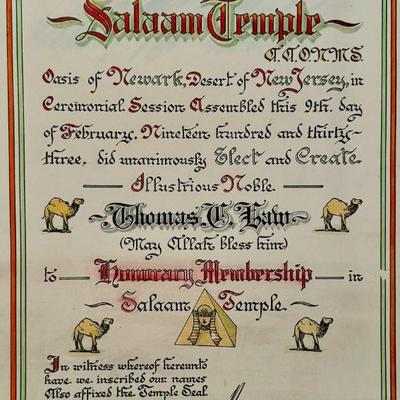 Salaam Temple
A.A.O.N.M.S.
Oasis of Newark, Desert of New Jersey, in
Ceremonial Session Assembled this 9th. day
of February, Nineteen hundred and thirty-
three, did unanimously Elect and Create
Illustrious Noble
Thomas C. Law
(May Allah bless him)
to Honorary Membership in
Salaam Temple
In witness whereof hereunto
have we inscribed our names
Also affixed the Temple Seal.